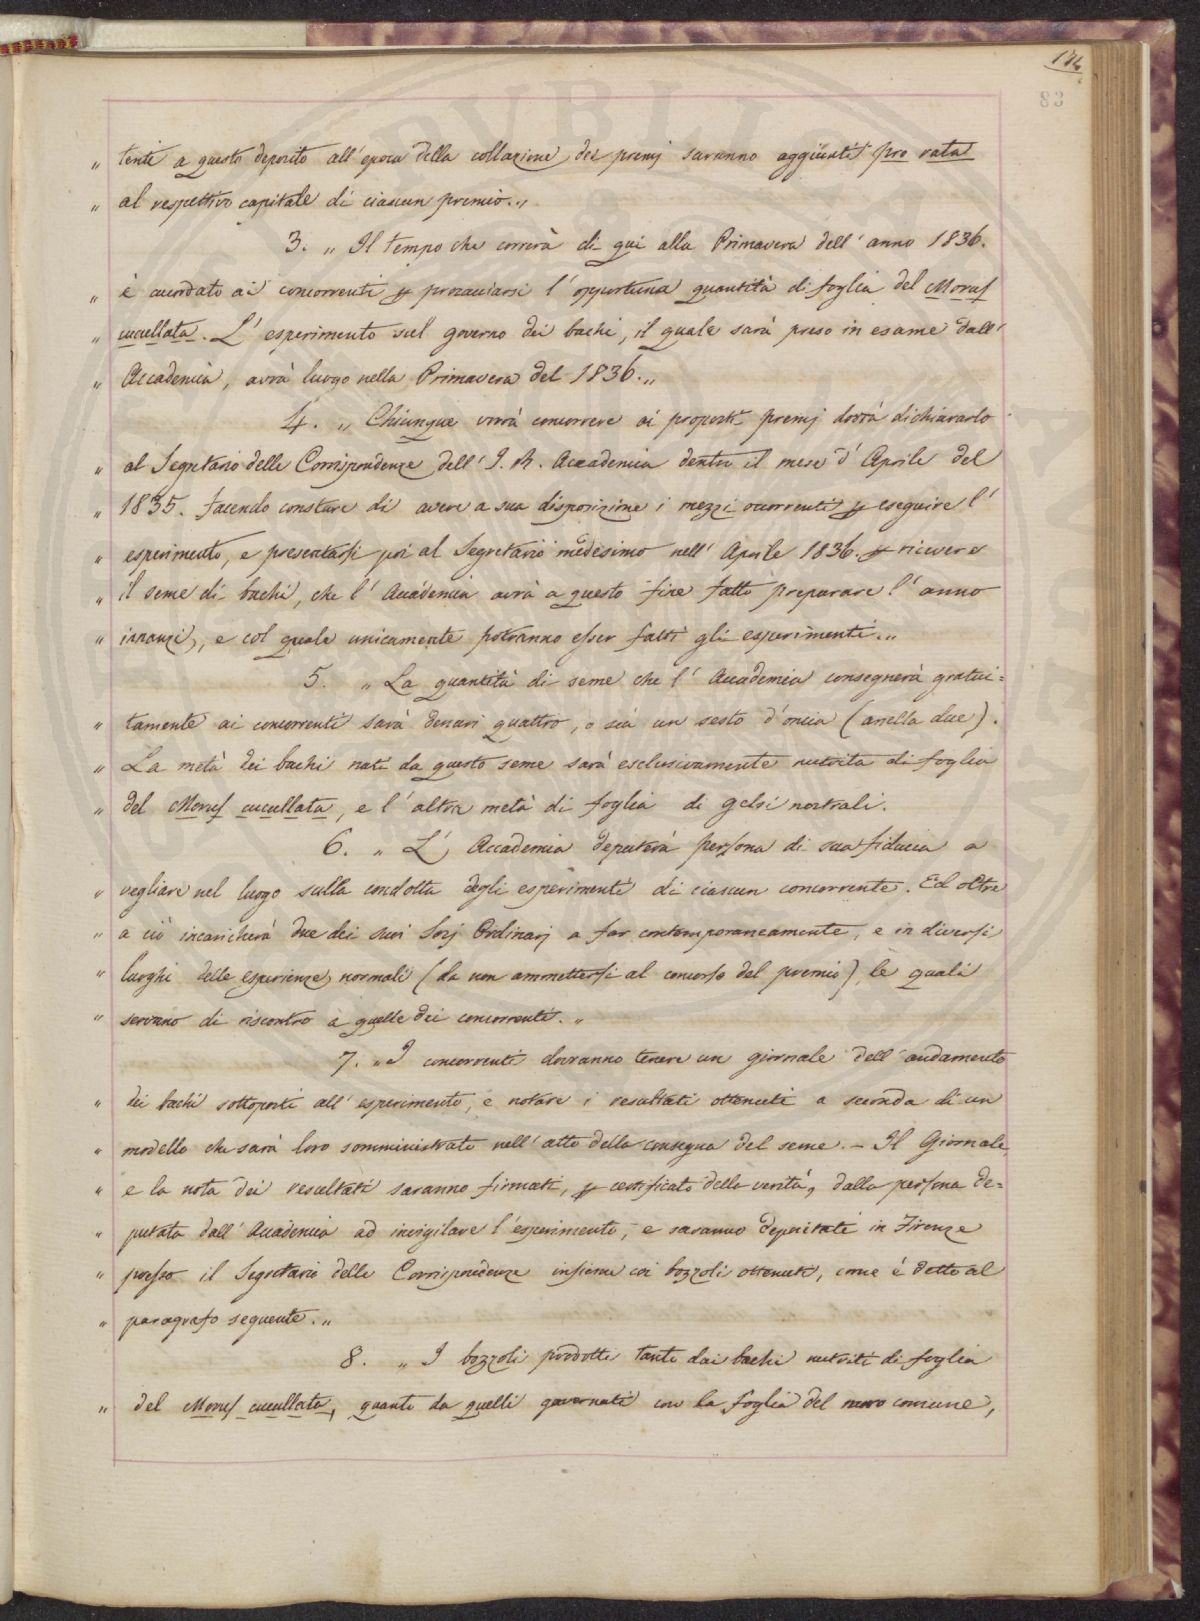 136
83
„ tenti a questo deposito all'epoca della collazione dei premj saranno aggiunti pro rata
„ al respettivo capitale di ciascun premio.„
3. „ Il tempo che correrà di qui alla Primavera dell'anno 1836.
„ è accordato ai concorrenti p procacciarsi l'opportuna quantità di foglia del Morus
„ cucullata. L'esperimento sul governo dei bachi, il quale sarà preso in esame dall'
„ Accademia, avrà luogo nella Primavera del 1836.„
4. „ Chiunque vorrà concorrere ai proposti premj dovrà dichiararlo
„ al Segretario delle Corrispondenze dell'I. R. Accademia dentro il mese d'Aprile del
„ 1835. facendo constare di avere a sua disposizione i mezzi occorrenti p eseguire l'
„ esperimento, e presentarsi poi al Segretario medesimo nell'Aprile 1836. p ricevere
„ il seme di bachi, che l'Accademia avrà a questo fine fatto preparare l'anno
„ innanzi, e col quale unicamente potranno esser fatti gli esperimenti.„
5. „ La quantità di seme che l'Accademia consegnerà gratui=
„ tamente ai concorrenti sarà denari quattro, o sia un sesto d'oncia (anella due).
„ La metà dei bachi nati da questo seme sarà esclusivamente nutrita di foglia
„ del Morus cucullata, e l'altra metà di foglia di gelsi nostrali.
6. „ L'Accademia deputerà persona di sua fiducia a
„ vegliare nel luogo sulla condotta degli esperimenti di ciascun concorrente. Ed oltre
„ a ciò incaricherà due dei suoi Socj Ordinarj a far contemporaneamente, e in diversi
„ luoghi delle esperienze normali (da non ammettersi al concorso del premio) le quali
„ servano di riscontro a quelle dei concorrenti. „
7. „ I concorrenti dovranno tenere un giornale dell'andamento
„ dei bachi sottoposti all'esperimento, e notare i resultati ottenuti a seconda di un
„ modello che sarà loro somministrato nell'atto della consegna del seme. – Il Giornale
„ e la nota dei resultati saranno firmati, p certificato della verità, dalla persona de=
„ putata dall'Accademia ad invigilare l'esperimento, e saranno depositati in Firenze
„ presso il Segretario delle Corrispondenze insieme coi bozzoli ottenuti, come è detto al
„ paragrafo seguente.„
8. „ I bozzoli prodotti tanto dai bachi nutriti di foglia
„ del Morus cucullata, quanto da quelli governati con la foglia del moro comune,